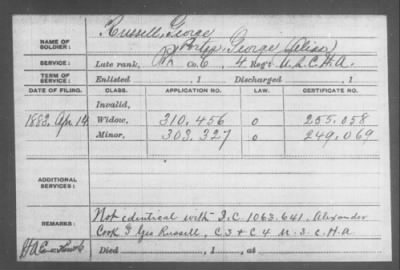 Russell, George
NAME OF SOLDIER:
Porter, George (alias)
SERVICE: Late rank, Co. C, 4 Reg't U.S.C.H.A.
TERM OF SERVICE: Enlisted , 1 Discharged , 1
DATE OF FILING. CLASS. APPLICATION NO. LAW. CERTIFICATE NO.
Invalid,
1883, Apr. 14 Widow, 310.456 o 255.058
Minor, 303.327 o 249.069
ADDITIONAL SERVICES:
REMARKS: Not identical with I.C. 1063.641. Alexander
Cook & Geo Russell, C 3 & C 4 U.S.C.H.A
Died , 1 , at